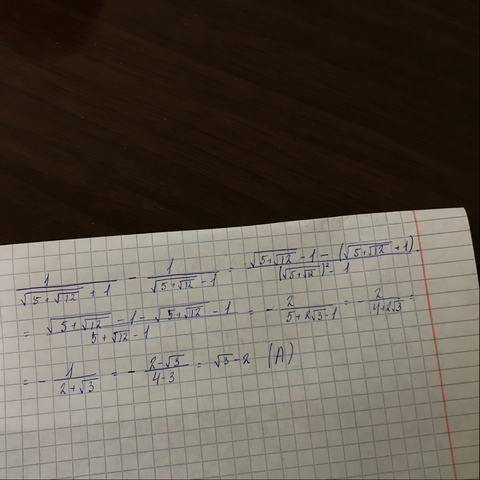 1/(√(5+√12) + 1) - 1/(√(5+√12) - 1) = (√(5+√12) - 1 - (√(5+√12) + 1))/((√(5+√12))² - 1) =
= (√(5+√12) - 1 - √(5+√12) - 1)/(5+√12 - 1) = - 2/(5+2√3-1) = - 2/(4+2√3) =
= - 1/(2+√3) = - (2-√3)/(4-3) = √3-2 (A)